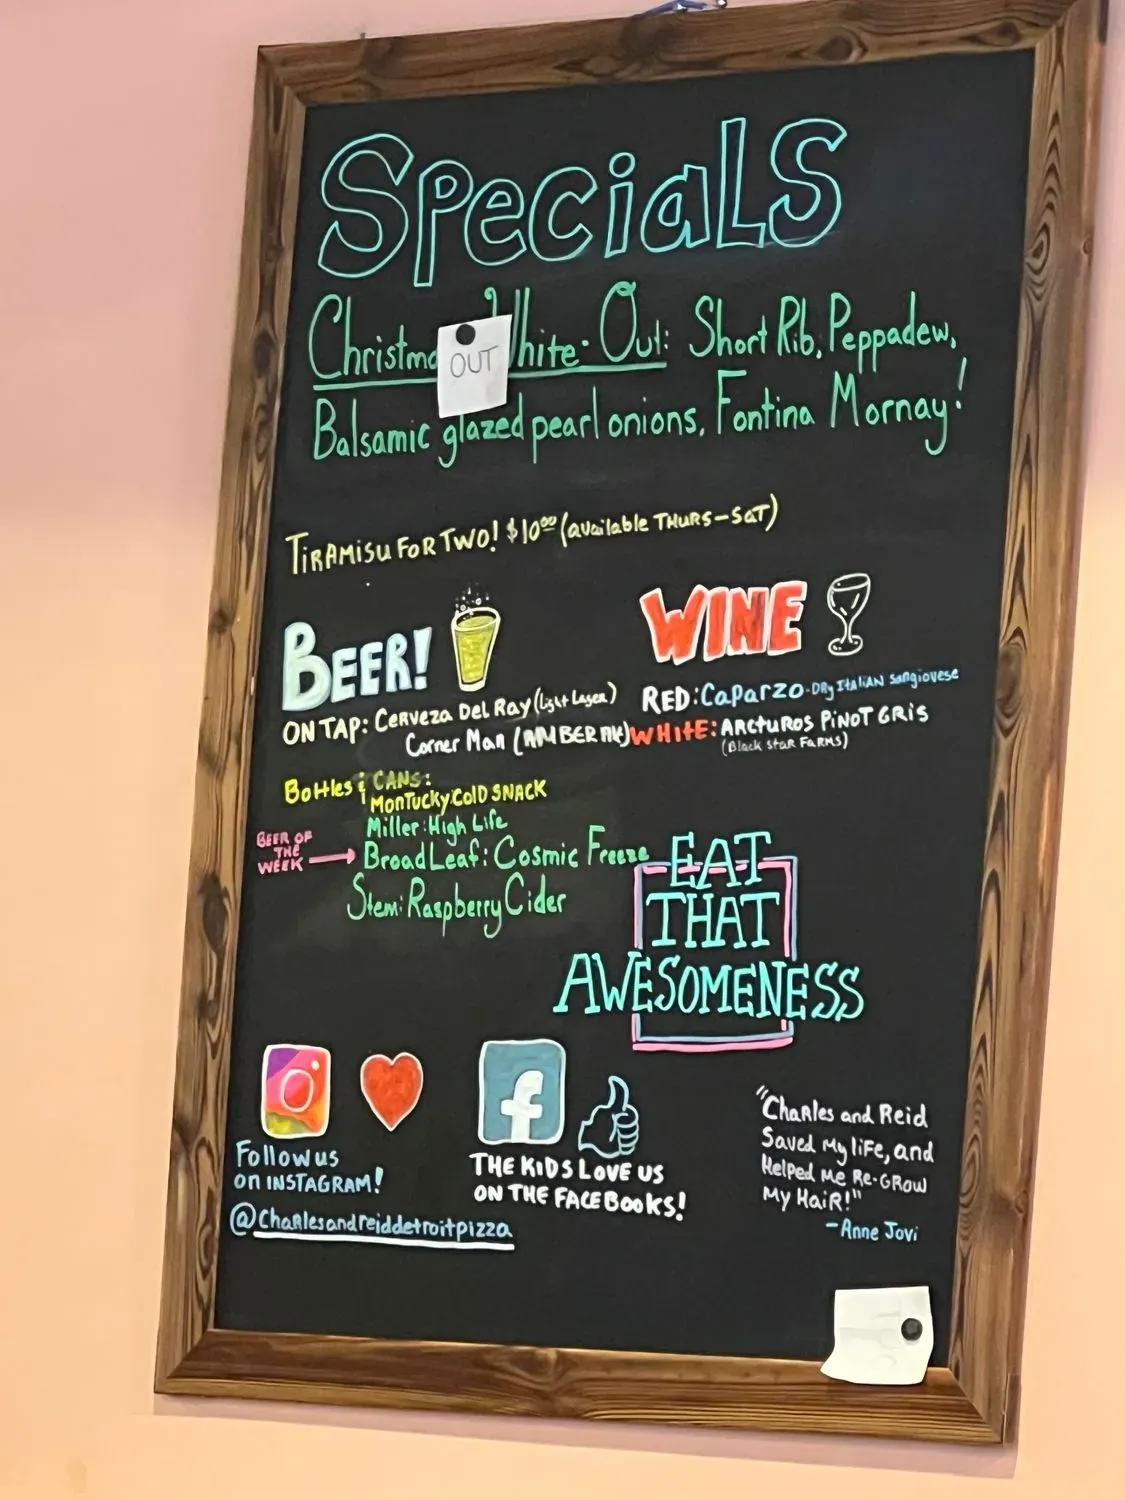 SPeciaLS
Christma White-Out: Short Rib, Peppadew,
OUT
Balsamic glazed pearl onions, Fontina Mornay!
TiRAMisu FoR TWO! $10.00 (available THURS-SAT)
BEER!
ON TAP: Cerveza Del Ray (Light Lager)
Corner Man (AMBER ALE)
Bottles & CANS:
MonTucky: Cold SNACK
Miller: High Life
BEER OF
THE
WEEK
Broad Leaf: Cosmic Freeze
Stem: Raspberry Cider
WINE
RED: Caparzo - DRy ITALIAN Sangiovese
WHITE: ARCTUROS PiNOT GRiS
(Black Star FaRMS)
EAT
THAT
AWESOMENESS
Follow us
on INSTAGRAM!
@Charlesandreiddetroitpizza
f
THE KiDS LOVE US
ON THE FACEBOOKS!
"ChaRles and Reid
Saved My liFe, and
Helped Me Re-GROW
My HaiR!"
- Anne Jovi